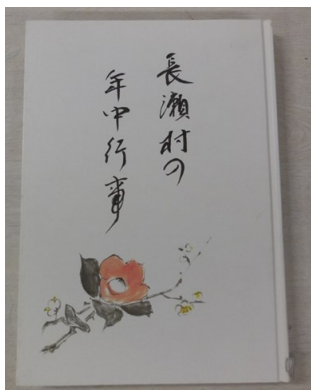 長瀬村の
年中行事